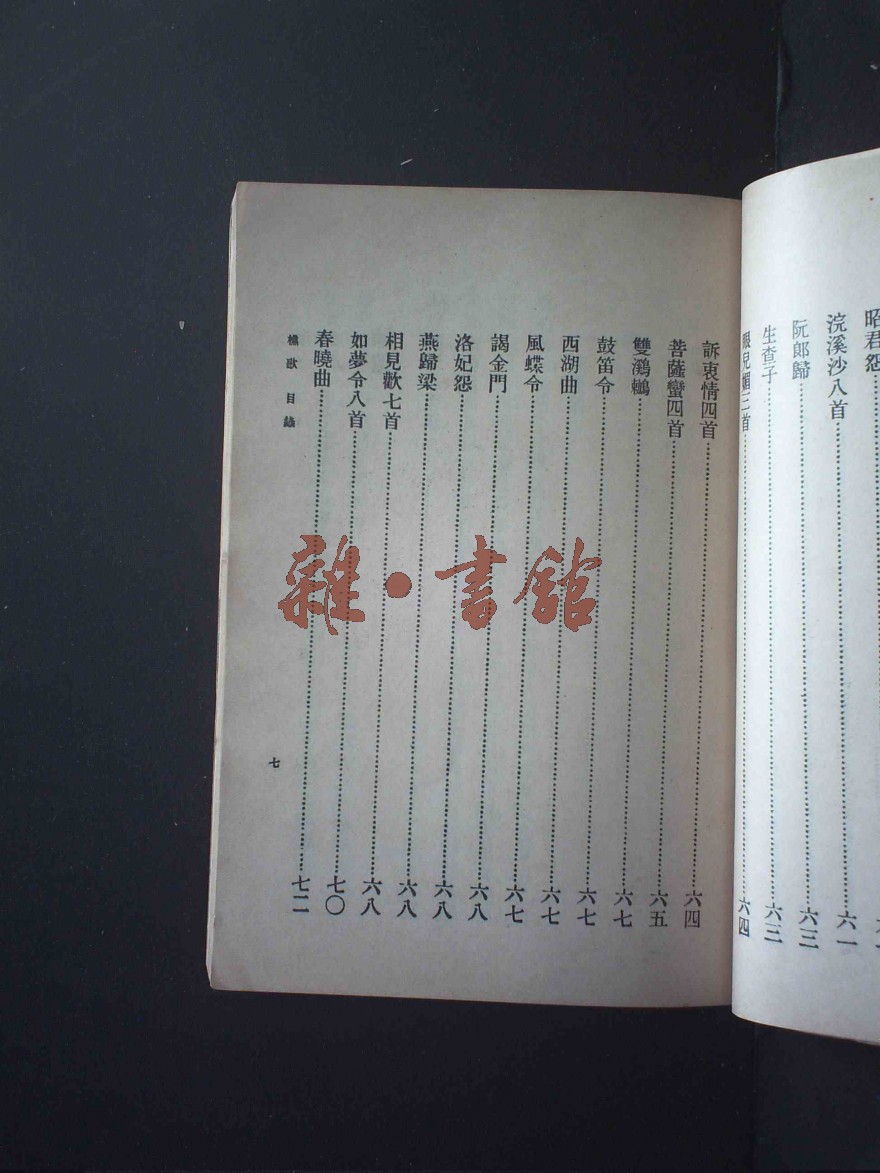 昭君怨
浣溪沙八首……六一
阮郎歸……六三
生查子……六三
眼兒媚三首……六四
訴衷情四首……六四
菩薩蠻四首……六五
雙鸂鶒……六七
鼓笛令……六七
西湖曲……六七
風蝶令……六七
謁金門……六八
洛妃怨……六八
燕歸梁……六八
相見歡七首……六八
如夢令八首……七〇
春曉曲……七二
樵歌目錄
七
雜·書館